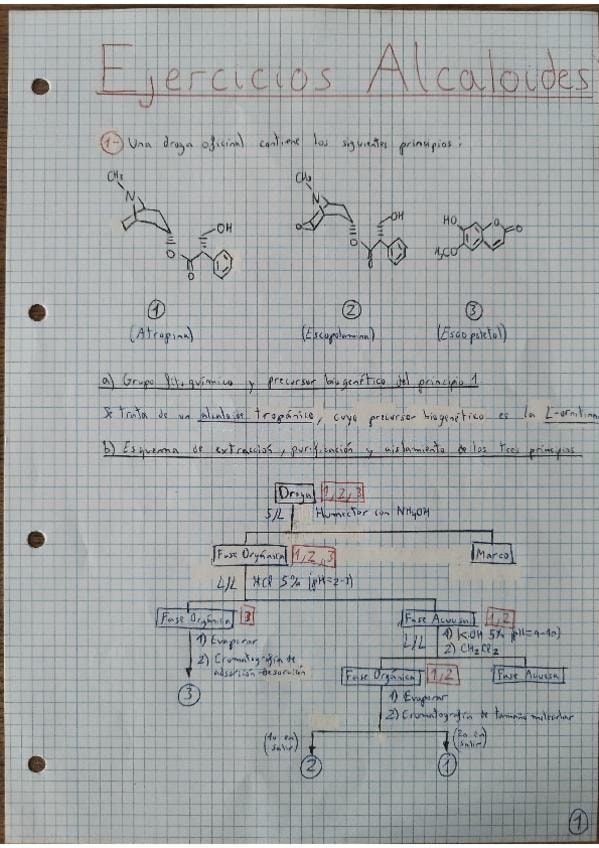 Ejercicios Alcaloides
1- Una droga oficinal contiene los siguientes principios:
CH₃ CH₃
N N
OH OH HO O O
O O H₃CO
O O O
① ② ③
(Atropina) (Escopolamina) (Escopoletol)
a) Grupo fitoquímico y precursor biogenético del principio 1
Se trata de un alcaloide tropánico, cuyo precursor biogenético es la L-ornitina
b) Esquema de extracción, purificación y aislamiento de los tres principios
Droga 1,2,3
S/L Humectar con NH₄OH
Fase Orgánica 1,2,3 Marco
L/L HCl 5% (pH=2-3)
Fase Orgánica 3 Fase Acuosa 1,2
1) Evaporar L/L 1) KOH 5% pH=9-10)
2) Cromatografía de 2) CH₂Cl₂
adsorción-desorción
Fase Orgánica 1,2 Fase Acuosa
③ 1) Evaporar
2) Cromatografía de tamaño molecular
(1o en salir) (2o en salir)
② ①
①